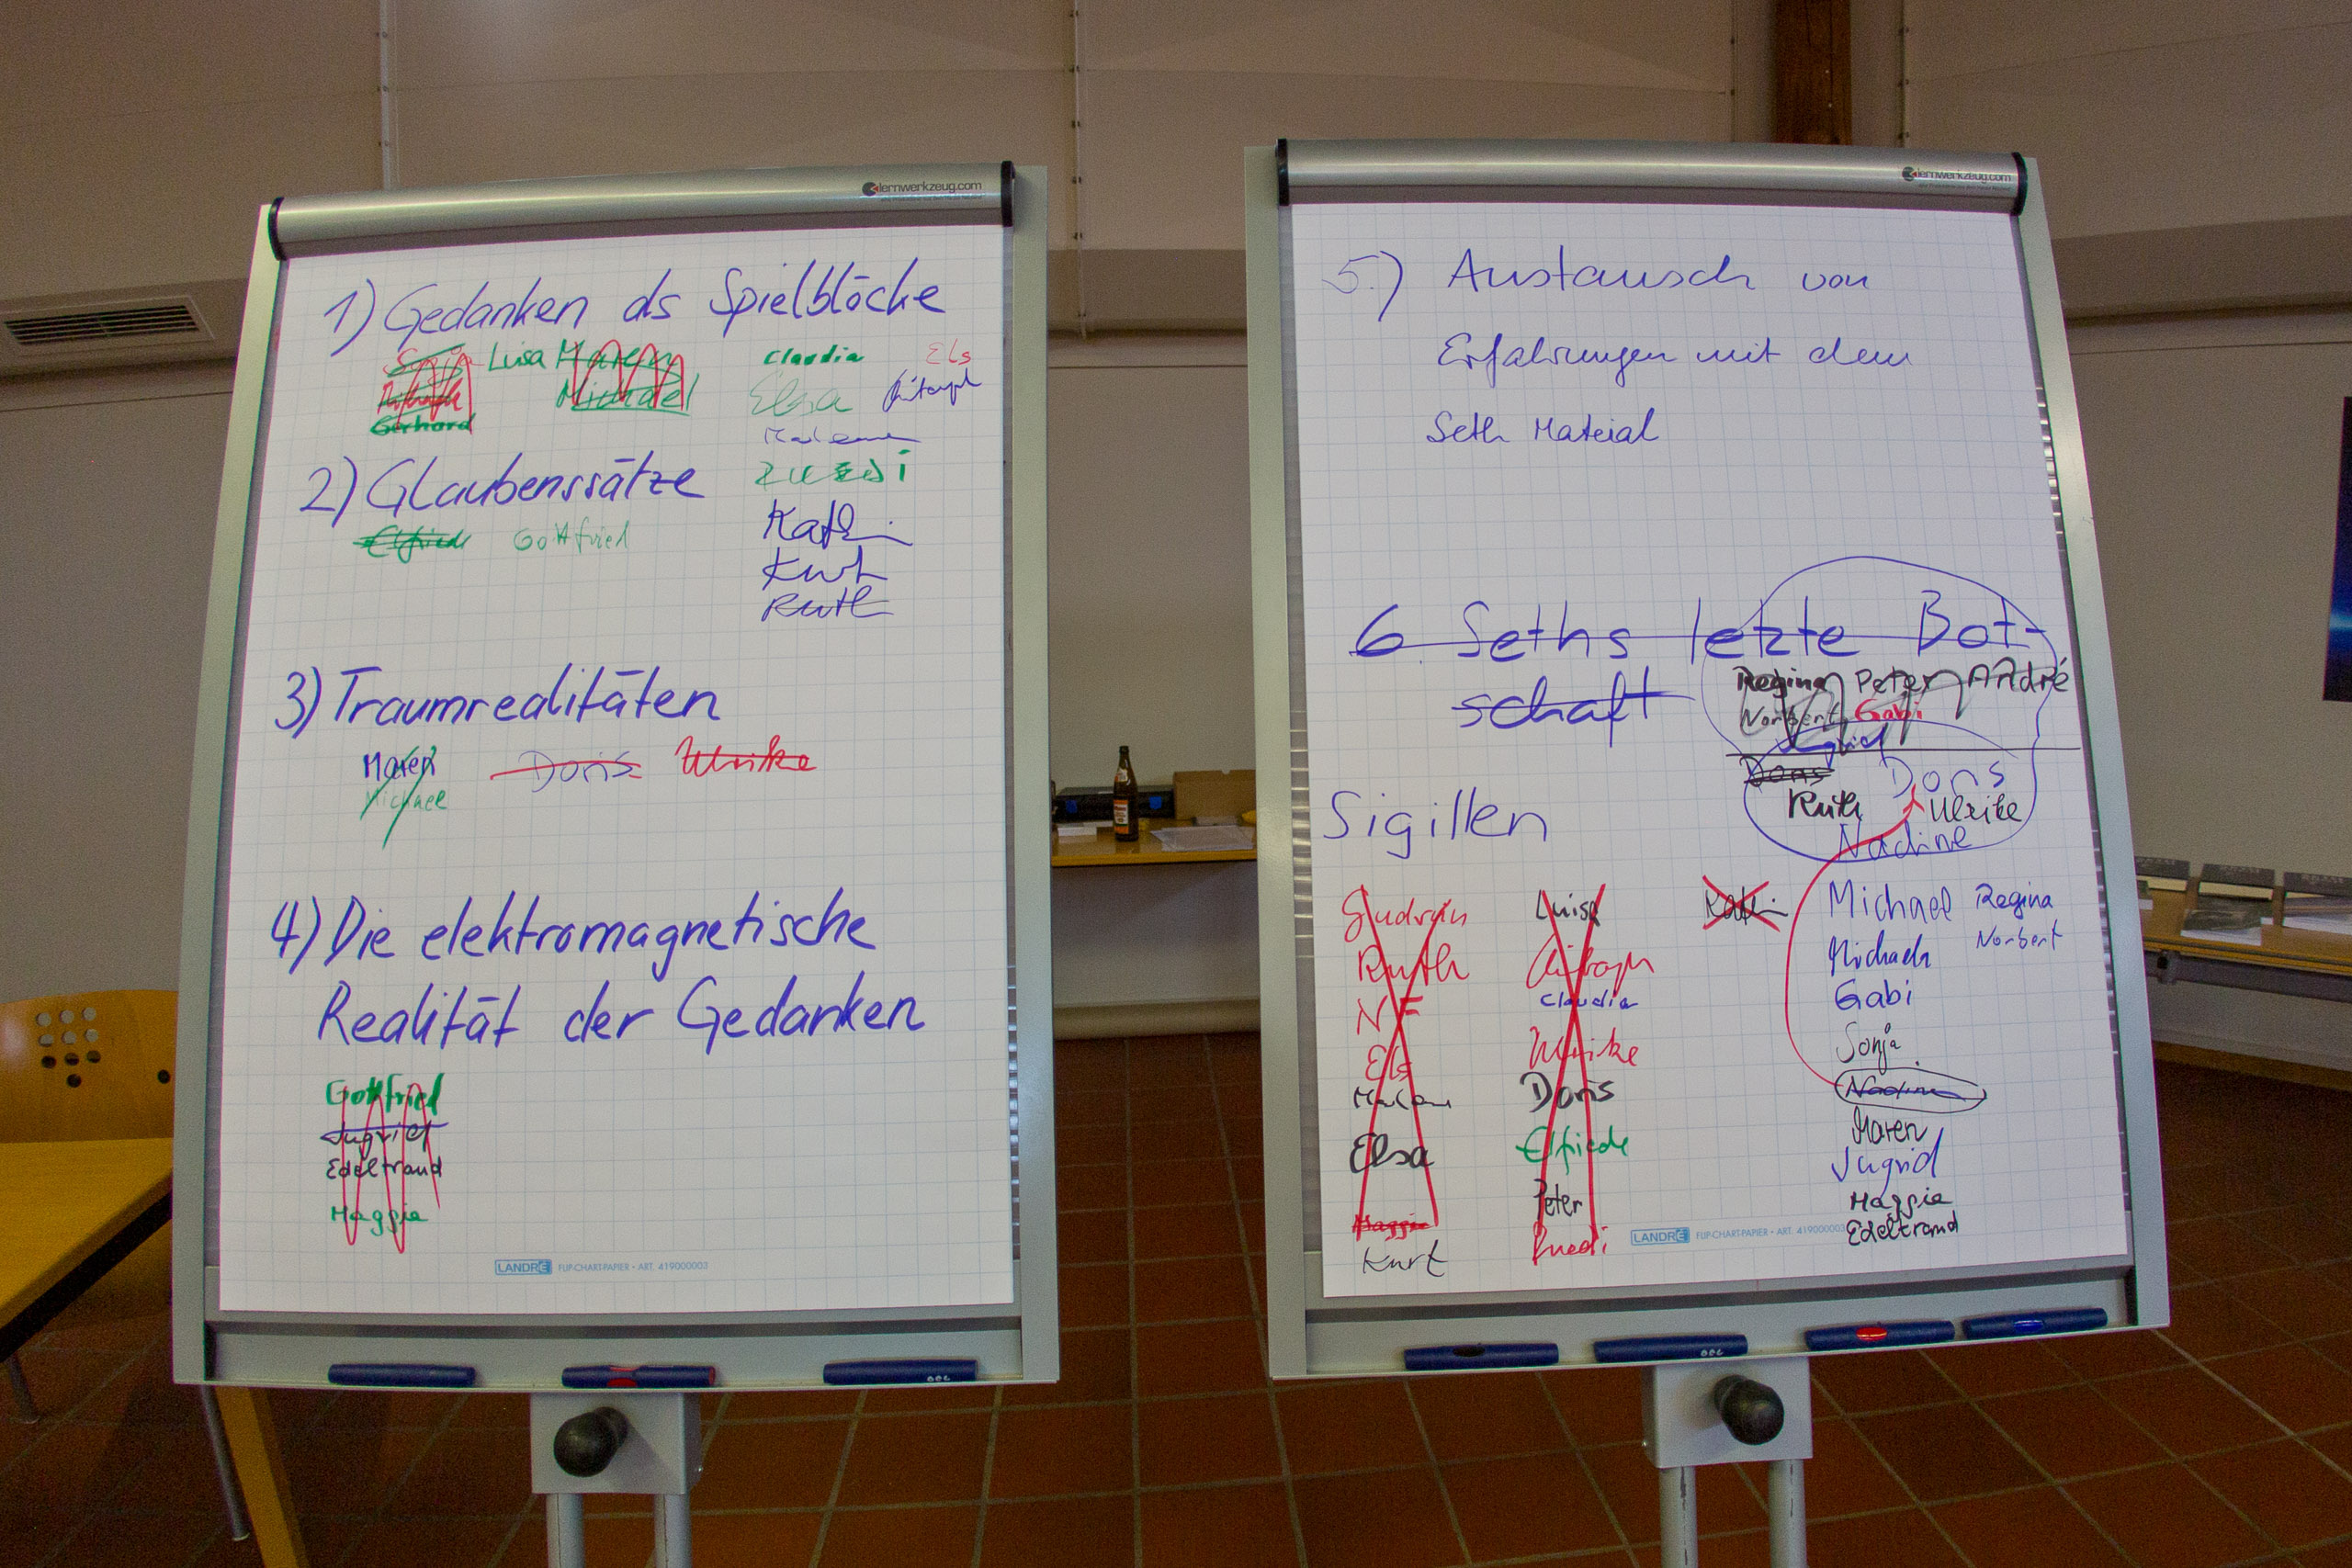 lernwerkzeug.com
1) Gedanken als Spielblöcke
Luisa Maren
Michael
Gerhard
Claudia Els
Elsa
2) Glaubenssätze
Elfriede Gottfried
Kathi
Kurt
Ruth
3) Traumrealitäten
Maren Doris Ulrike
Michael
4) Die elektromagnetische
Realität der Gedanken
Gottfried
Jngrid
Edeltraud
Maggie
LANDRÉ FLIP-CHART-PAPIER • ART. 419000003
lernwerkzeug.com
5.) Austausch von
Erfahrungen mit dem
Seth Material
6 Seths letzte Bot-
schaft
Regina Peter André
Norbert Gabi
Jngrid
Doris Doris
Ruth Ulrike
Nadine
Sigillen
Gudrun
Ruth
NF
Els
Elsa
Maggie
Kurt
Luisa
Claudia
Ulrike
Doris
Elfriede
Peter
Ruedi
Kathi
Michael Regina
Michaela Norbert
Gabi
Sonja
Nadine
Maren
Jngrid
Maggie
Edeltraud
LANDRÉ FLIP-CHART-PAPIER • ART. 419000003